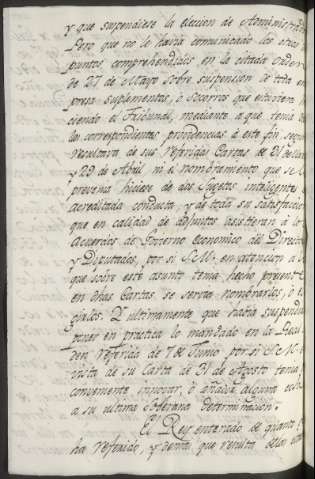 y que suspendiese la eleccion de Administrador
Pero que no le havia comunicado los otros
puntos comprehendidos en la citada orden
de 27 de Mayo sobre suspension de toda em
presa suplementos, ó socorros que estuviera ha
ciendo el Tribunal, mediante a que tenia da
las correspondientes providencias á este fin, segun
resultara de sus referidas Cartas de 31 de
y 29 de Abril ni el nombramiento que se le
prevenia hiciese de dos Sugetos inteligentes
acreditada conducta y de toda su satisfaccion
que en calidad de adjuntos asistieran á los
Acuerdos de Govierno Economico del Director
y Diputados, por si S.M. en atencion a lo
que sobre este asunto tenia hecho presente
en dhas Cartas, se servia nombrarlos, ó
Y ultimamente que havia suspendido
poner en practica lo mandado en la Real
den referida de 7 de Junio por si S.M. en
vista de su Carta de 31 de Agosto tenia
conveniente innovar, ó añadir alguna
a su ultima Soberana determinacion.
El Rey enterado de quanto
ha referido, y demas que resulta